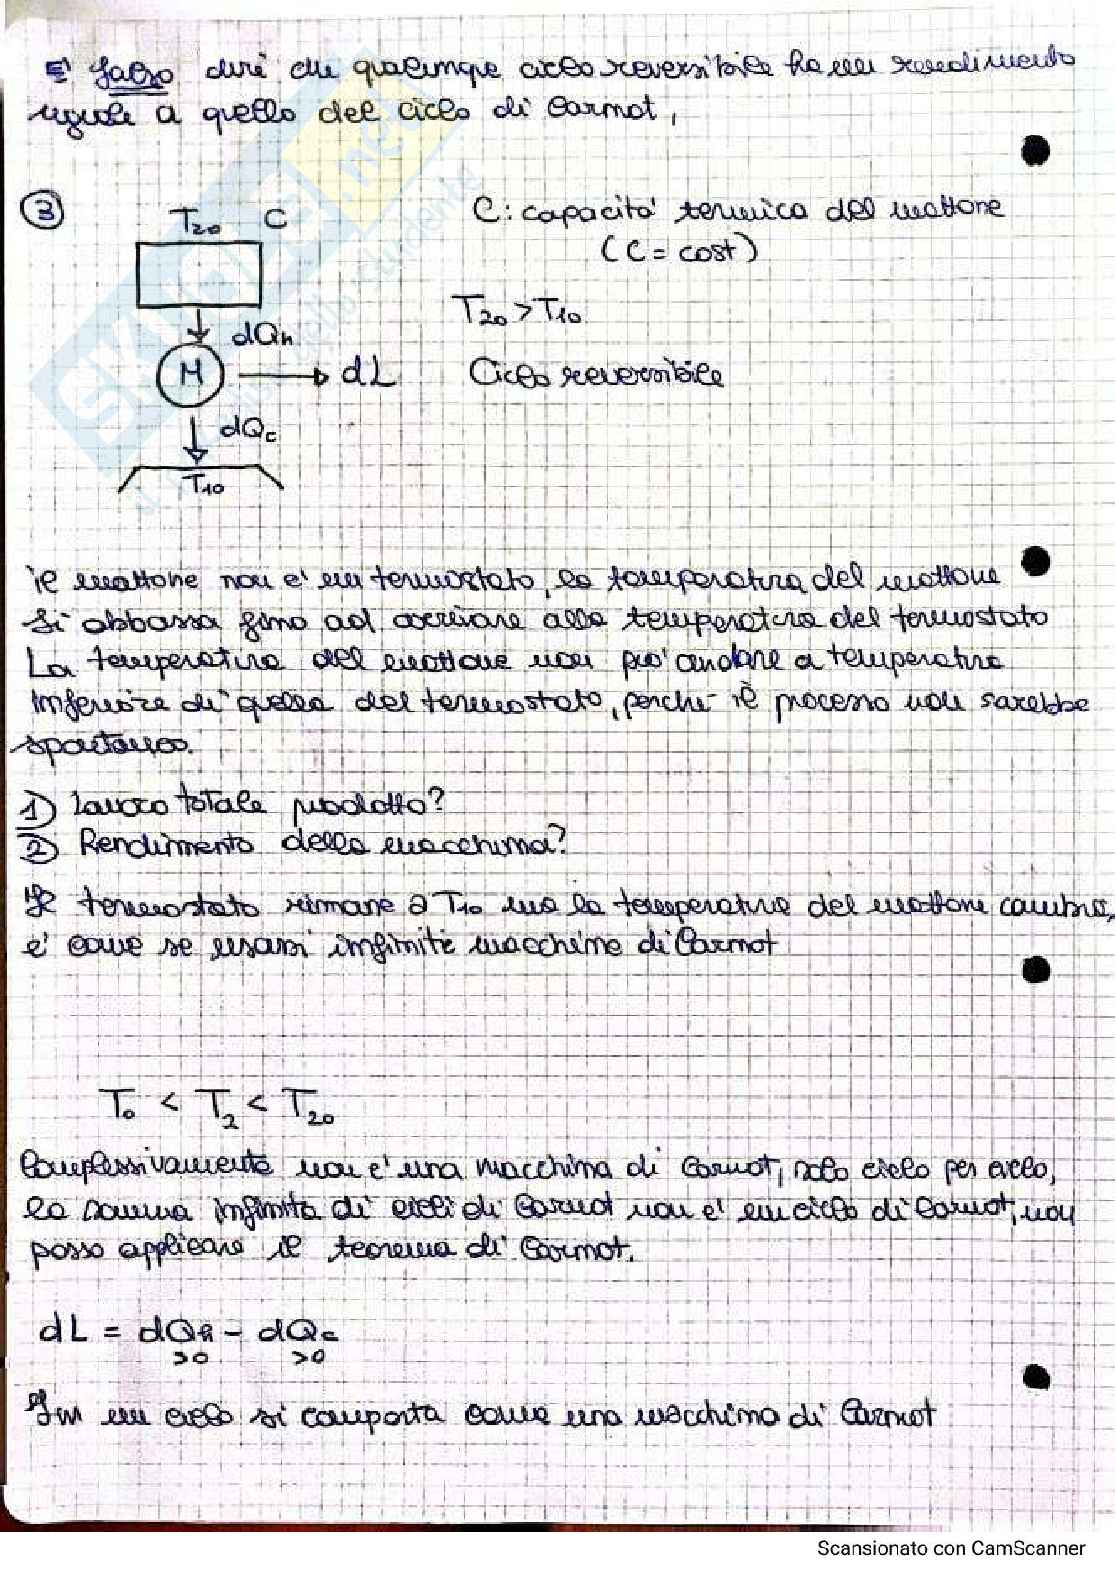 E' falso dire che qualunque ciclo reversibile ha un rendimento
uguale a quello del ciclo di Carnot,
3
T20 C
C: capacita' termica del mattone
(C = cost)
T20 > T10
dQh
M
dL
Ciclo reversibile
dQc
T10
il mattone non e' un termostato, la temperatura del mattone
si abbassa fino ad arrivare alla temperatura del termostato
La temperatura del mattone non puo' andare a temperatura
inferiore di quella del termostato, perche il processo non sarebbe
spontaneo.
1) Lavoro totale prodotto?
2) Rendimento della macchina?
Il termostato rimane a T10 ma la temperatura del mattone cambia,
e' come se usassi infinite macchine di Carnot
T0 < T2 < T20
Complessivamente non e' una macchina di Carnot, solo ciclo per ciclo,
la somma infinita di cicli di Carnot non e' un ciclo di Carnot, non
posso applicare il teorema di Carnot.
dL = dQh - dQc
>0 >0
In un ciclo si comporta come una macchina di Carnot
Scansionato con CamScanner